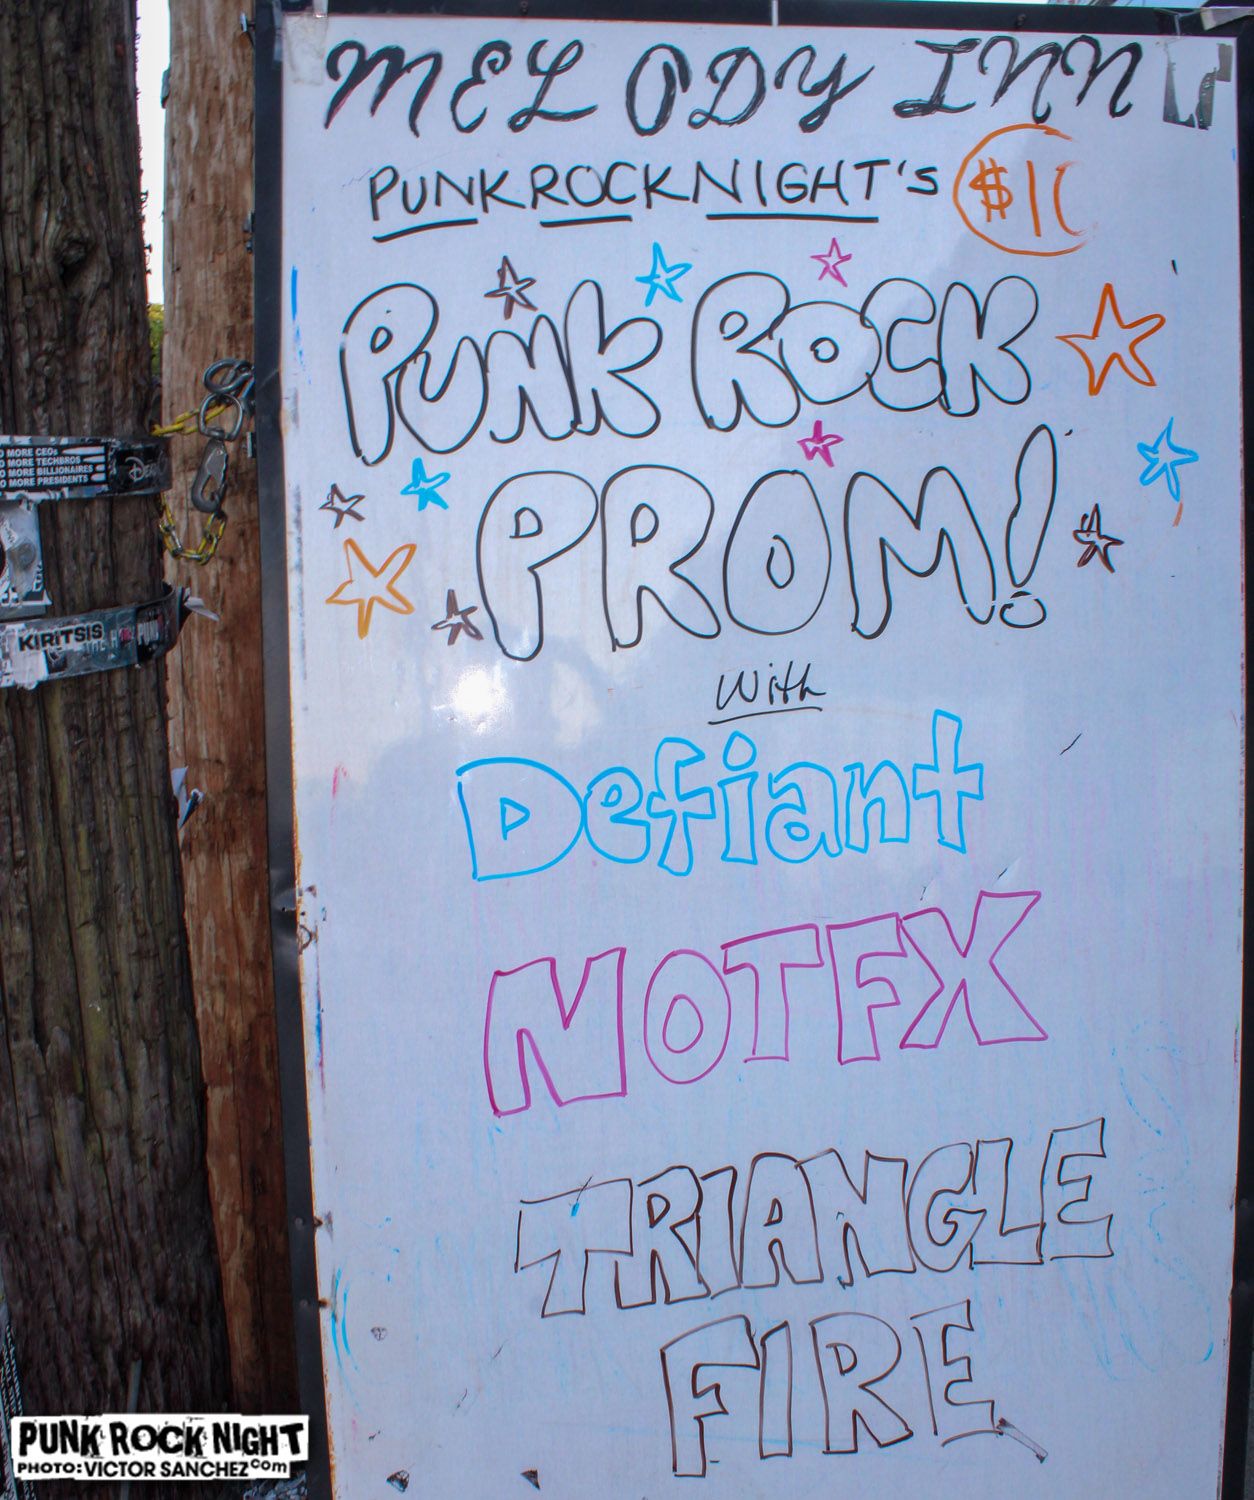 MELODY INN
PUNK ROCK NIGHT'S
PUNK ROCK
PROM!
with
Defiant
NOTFX
TRIANGLE
FIRE
NO MORE CEOs
NO MORE TECHBROS
NO MORE BILLIONAIRES
NO MORE PRESIDENTS
KIRITSIS
PUNK ROCK NIGHT
PHOTO: VICTOR SANCHEZ.COM